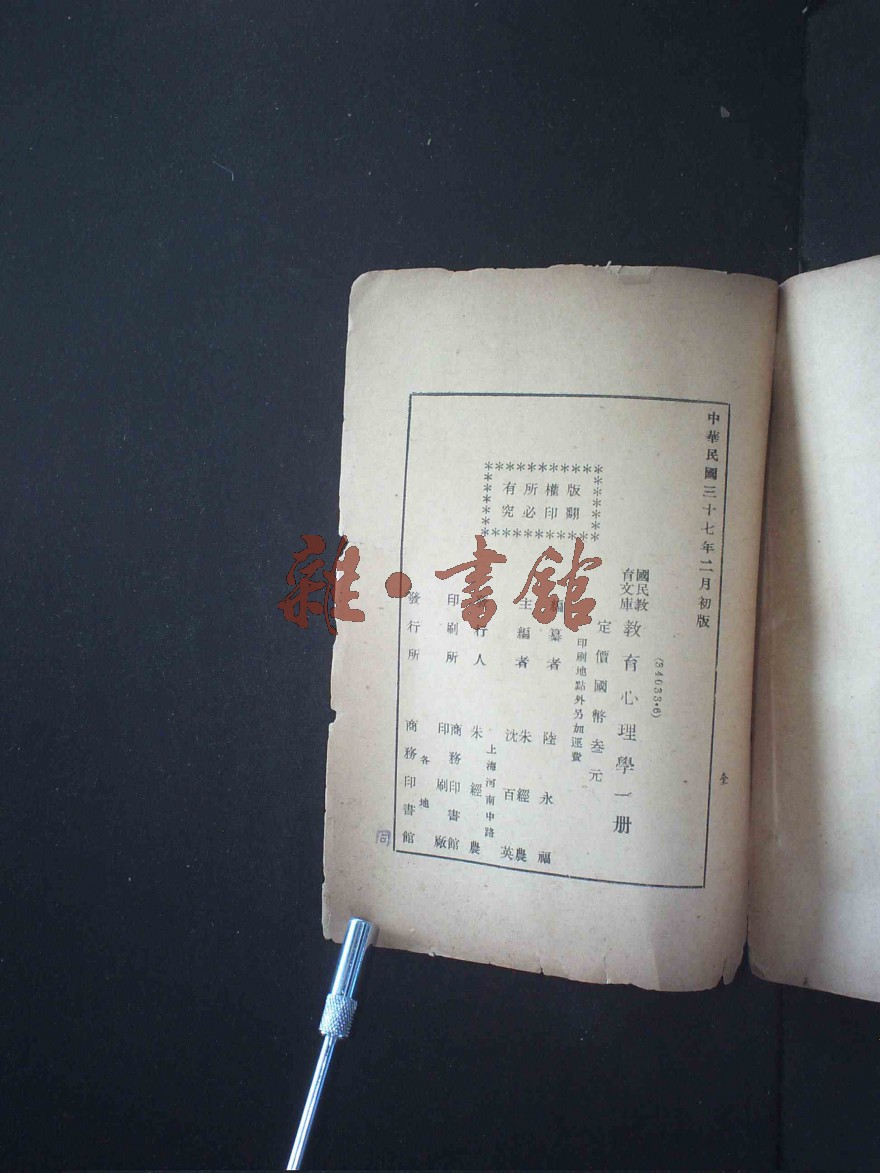 中華民國三十七年二月初版
全
(34033·6)
國民教育文庫 教育心理學一册
定價國幣叁元
印刷地點外另加運費
版權所有
翻印必究
編纂者 陸永福
主編者 朱經農 沈百英
發行人 上海河南中路 朱經農
印刷所 商務印書館印刷廠
發行所 各地 商務印書館
同
雜·書館